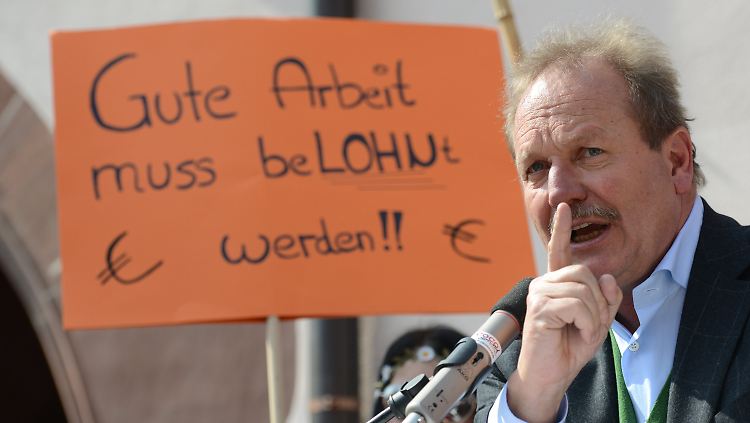 Gute Arbeit
muss beLOHNt
€ werden!! €